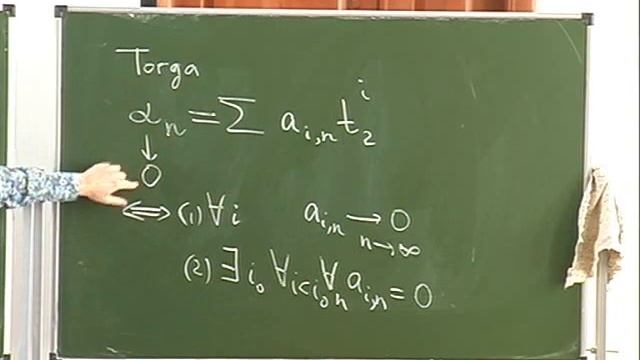 Torga
αₙ = Σ a_{i,n} t₂ⁱ
↓
0
⟺ (1) ∀i a_{i,n} → 0
n→∞
(2) ∃ i₀ ∀_{i<i₀} ∀_n a_{i,n} = 0